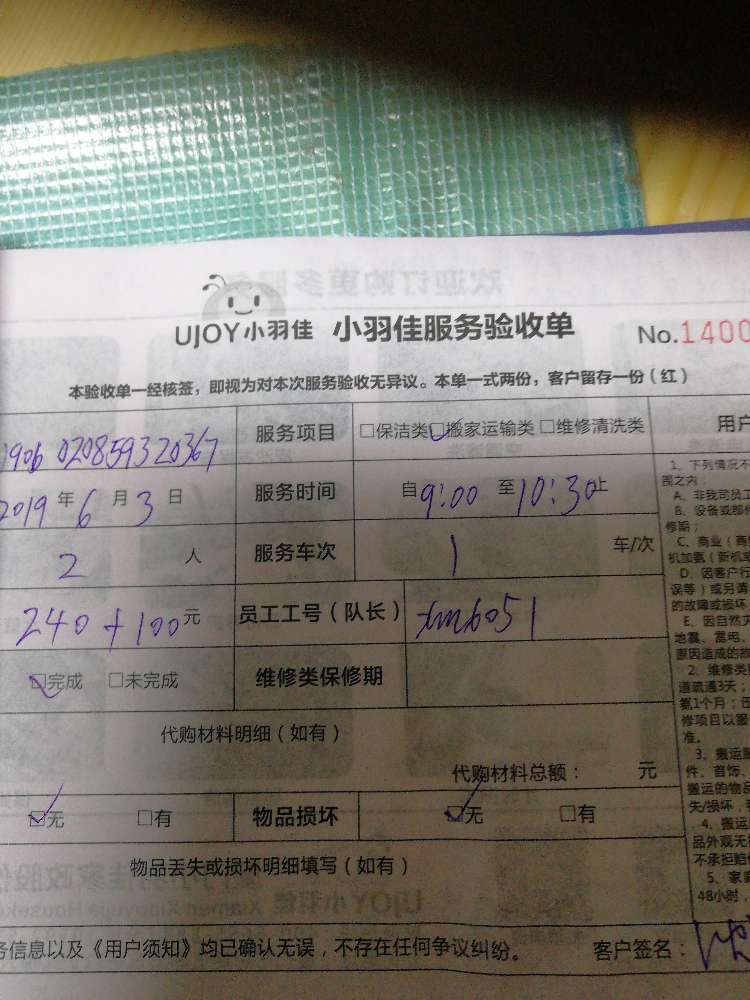 UJOY小羽佳 小羽佳服务验收单 No.1400
本验收单一经核签，即视为对本次服务验收无异议。本单一式两份，客户留存一份（红）
1906 020859320367 服务项目 □保洁类 ☑搬家运输类 □维修清洗类
2019年6月3日 服务时间 自9:00至10:30止
2人 服务车次 1 车/次
240+100元 员工工号（队长） xm6051
☑完成 □未完成 维修类保修期
代购材料明细（如有）
代购材料总额： 元
☑无 □有 物品损坏 ☑无 □有
物品丢失或损坏明细填写（如有）
务信息以及《用户须知》均已确认无误，不存在任何争议纠纷。 客户签名：
用户
1、下列情况不
围之内：
A、非我司员工
B、设备或部件
修期；
C、商业（商
机加氨（新机
D、因客户行
误等）或另请
的故障或损坏
E、因自然灾
地震、雷电、
原因造成的故
2、维修类
道疏通3天；
氨1个月；
修项目以服
准。
3、搬运
件、首饰、
搬运的物品
失/损坏，
4、搬运
品外观无
不承担赔
5、家
48小时，